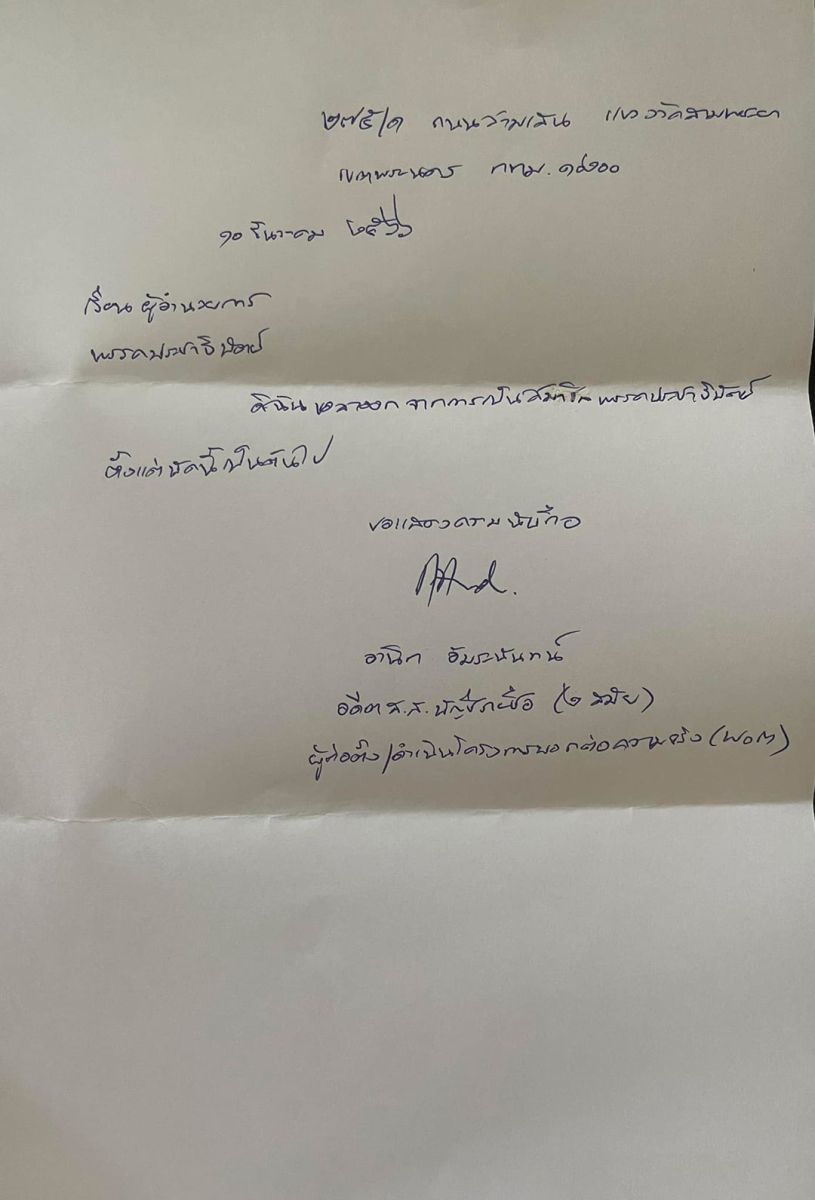 ๒๗๕/๑ ถนนสามเสน แขวงวัดสามพระยา
เขตพระนคร กทม. ๑๐๒๐๐
๑๐ ธันวาคม ๒๕๖๖
เรียน ผู้อำนวยการ
พรรคประชาธิปัตย์
ดิฉันขอลาออกจากการเป็นสมาชิกพรรคประชาธิปัตย์
ตั้งแต่บัดนี้เป็นต้นไป
ขอแสดงความนับถือ
อานิก อัมระนันทน์
อดีต ส.ส. บัญชีรายชื่อ (๒ สมัย)
ผู้ก่อตั้ง/ดำเนินโครงการบอกต่อความจริง (พอต)